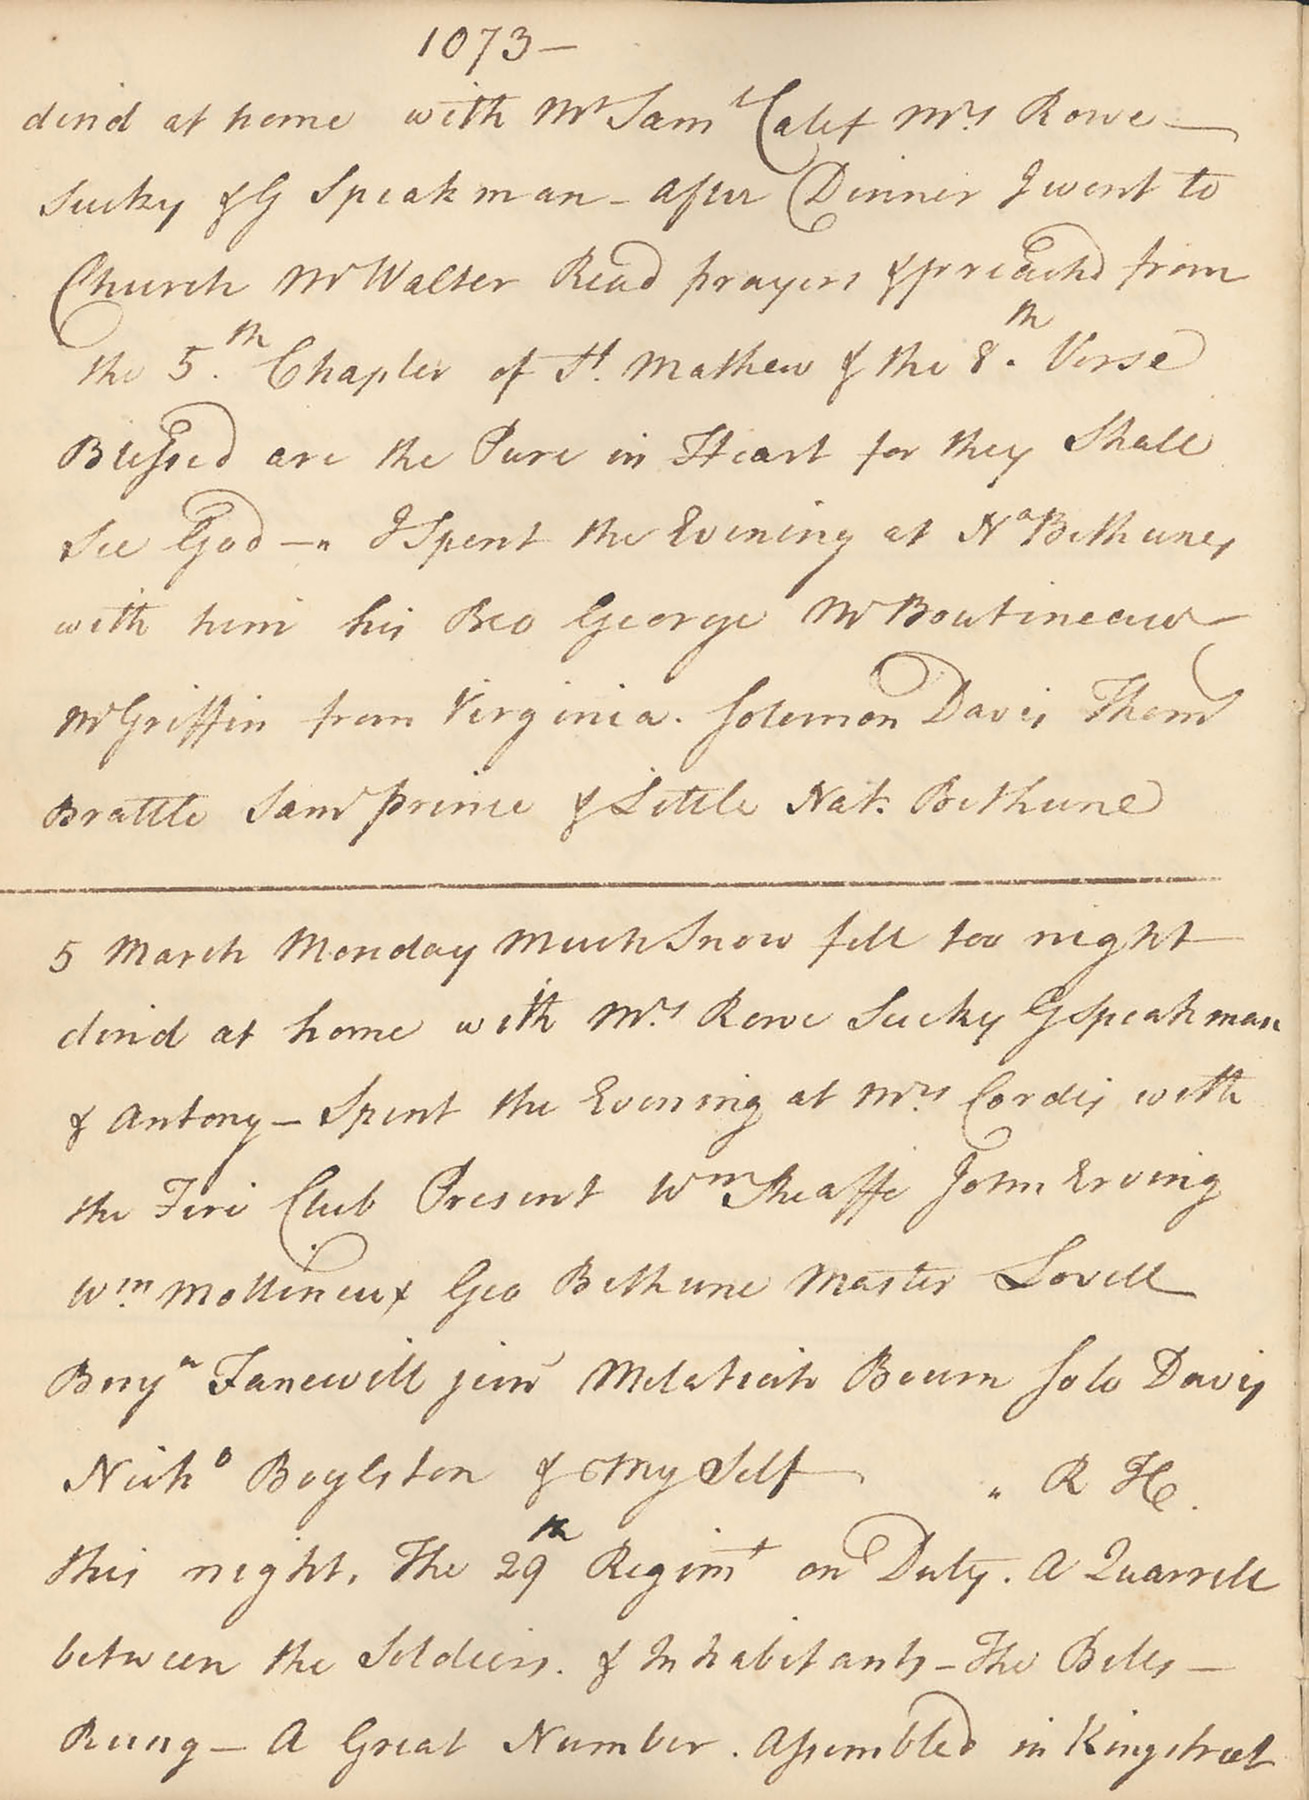 1073—
dind at home with Mr Saml Calef Mrs Rowe—
Sucky & G Speakman – after Dinner I went to
Church Mr Walter Read prayers & preachd from
the 5.th Chapter of St. Mathew & the 8.th Verse
Blessed are the Pure in Heart for they Shall
See God —" I Spent the Evening at Na Bethunes
with him his Bro George Mr Boutineau
Mr Griffin from Virginia. Solomon Davis Thom
Brattle Saml prince & Little Nat. Bethune
5 March Monday Much Snow fell too night
dind at home with Mrs Rowe Sucky G Speakman
& Antony – Spent the Evening at Mrs Cordis with
the Fire Club Present Wm Sheaffe John Erving
Wm. Mollineux Geo Bethune Master Lovell
Benja Fanewill junr Melatiah Bourn Solo Davis
Nicho Boylston & My Self " R H.
this night. The 29th Regimt on Duty. A Quarrell
between the Soldiers. & Inhabitants – The Bells –
Rung – A Great Number. Assembled in Kingstreet